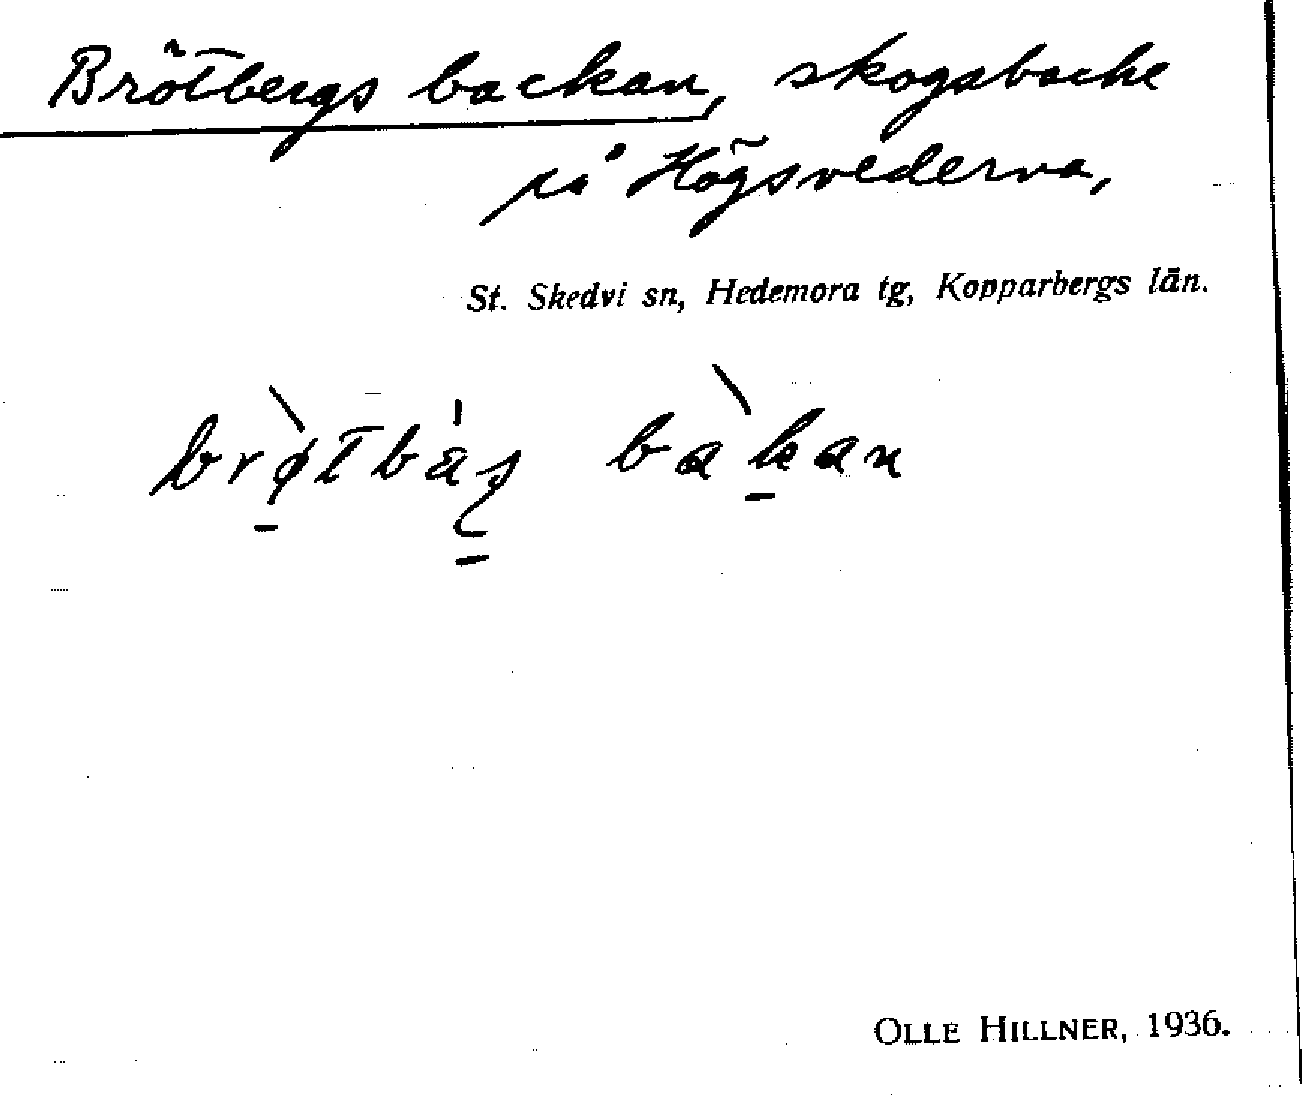 Brötbergs backan, skogsbacke
på Högsvederna,
St. Skedvi sn, Hedemora tg, Kopparbergs län.
brø̀tbàș bàkan
OLLE HILLNER, 1936.